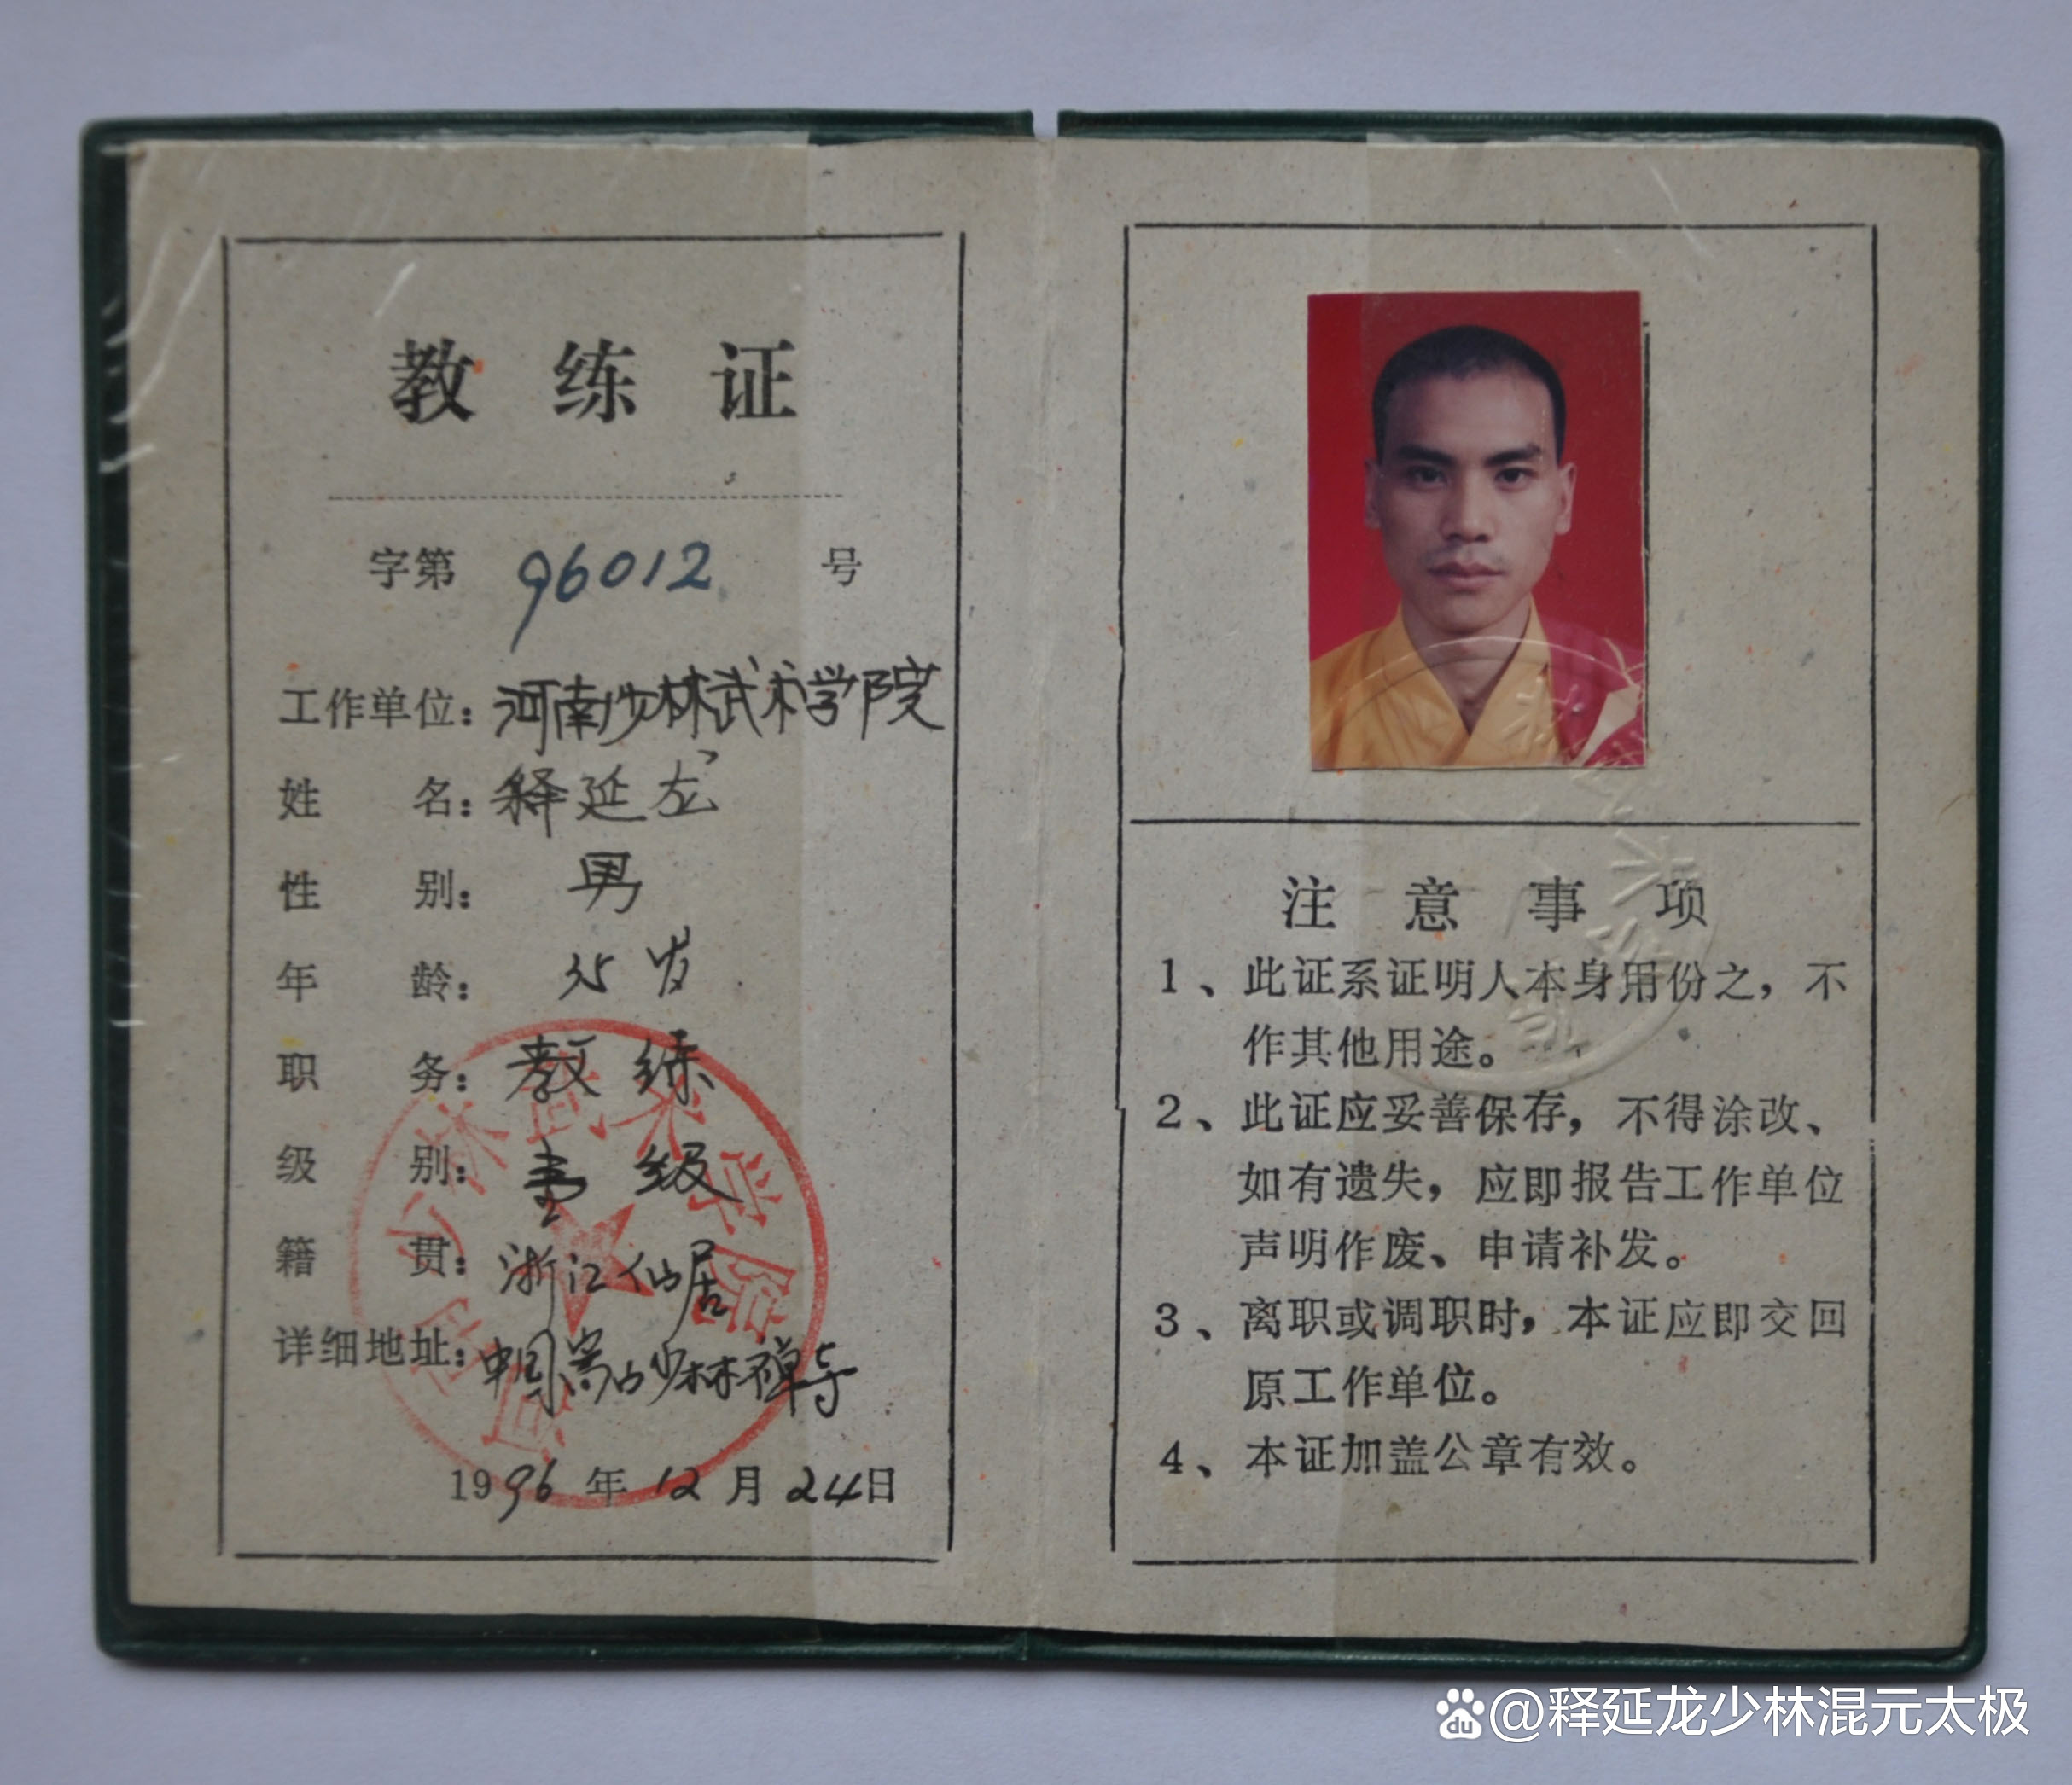 教练证
字第 96012 号
工作单位：河南少林武术学院
姓名：释延龙
性别：男
年龄：35岁
职务：教练
级别：壹级
籍贯：浙江仙居
详细地址：中国嵩山少林禅寺
1996年12月24日
河南省少林武术学院
注意事项
1、此证系证明人本身用份之，不
作其他用途。
2、此证应妥善保存，不得涂改、
如有遗失，应即报告工作单位
声明作废、申请补发。
3、离职或调职时，本证应即交回
原工作单位。
4、本证加盖公章有效。
du @释延龙少林混元太极